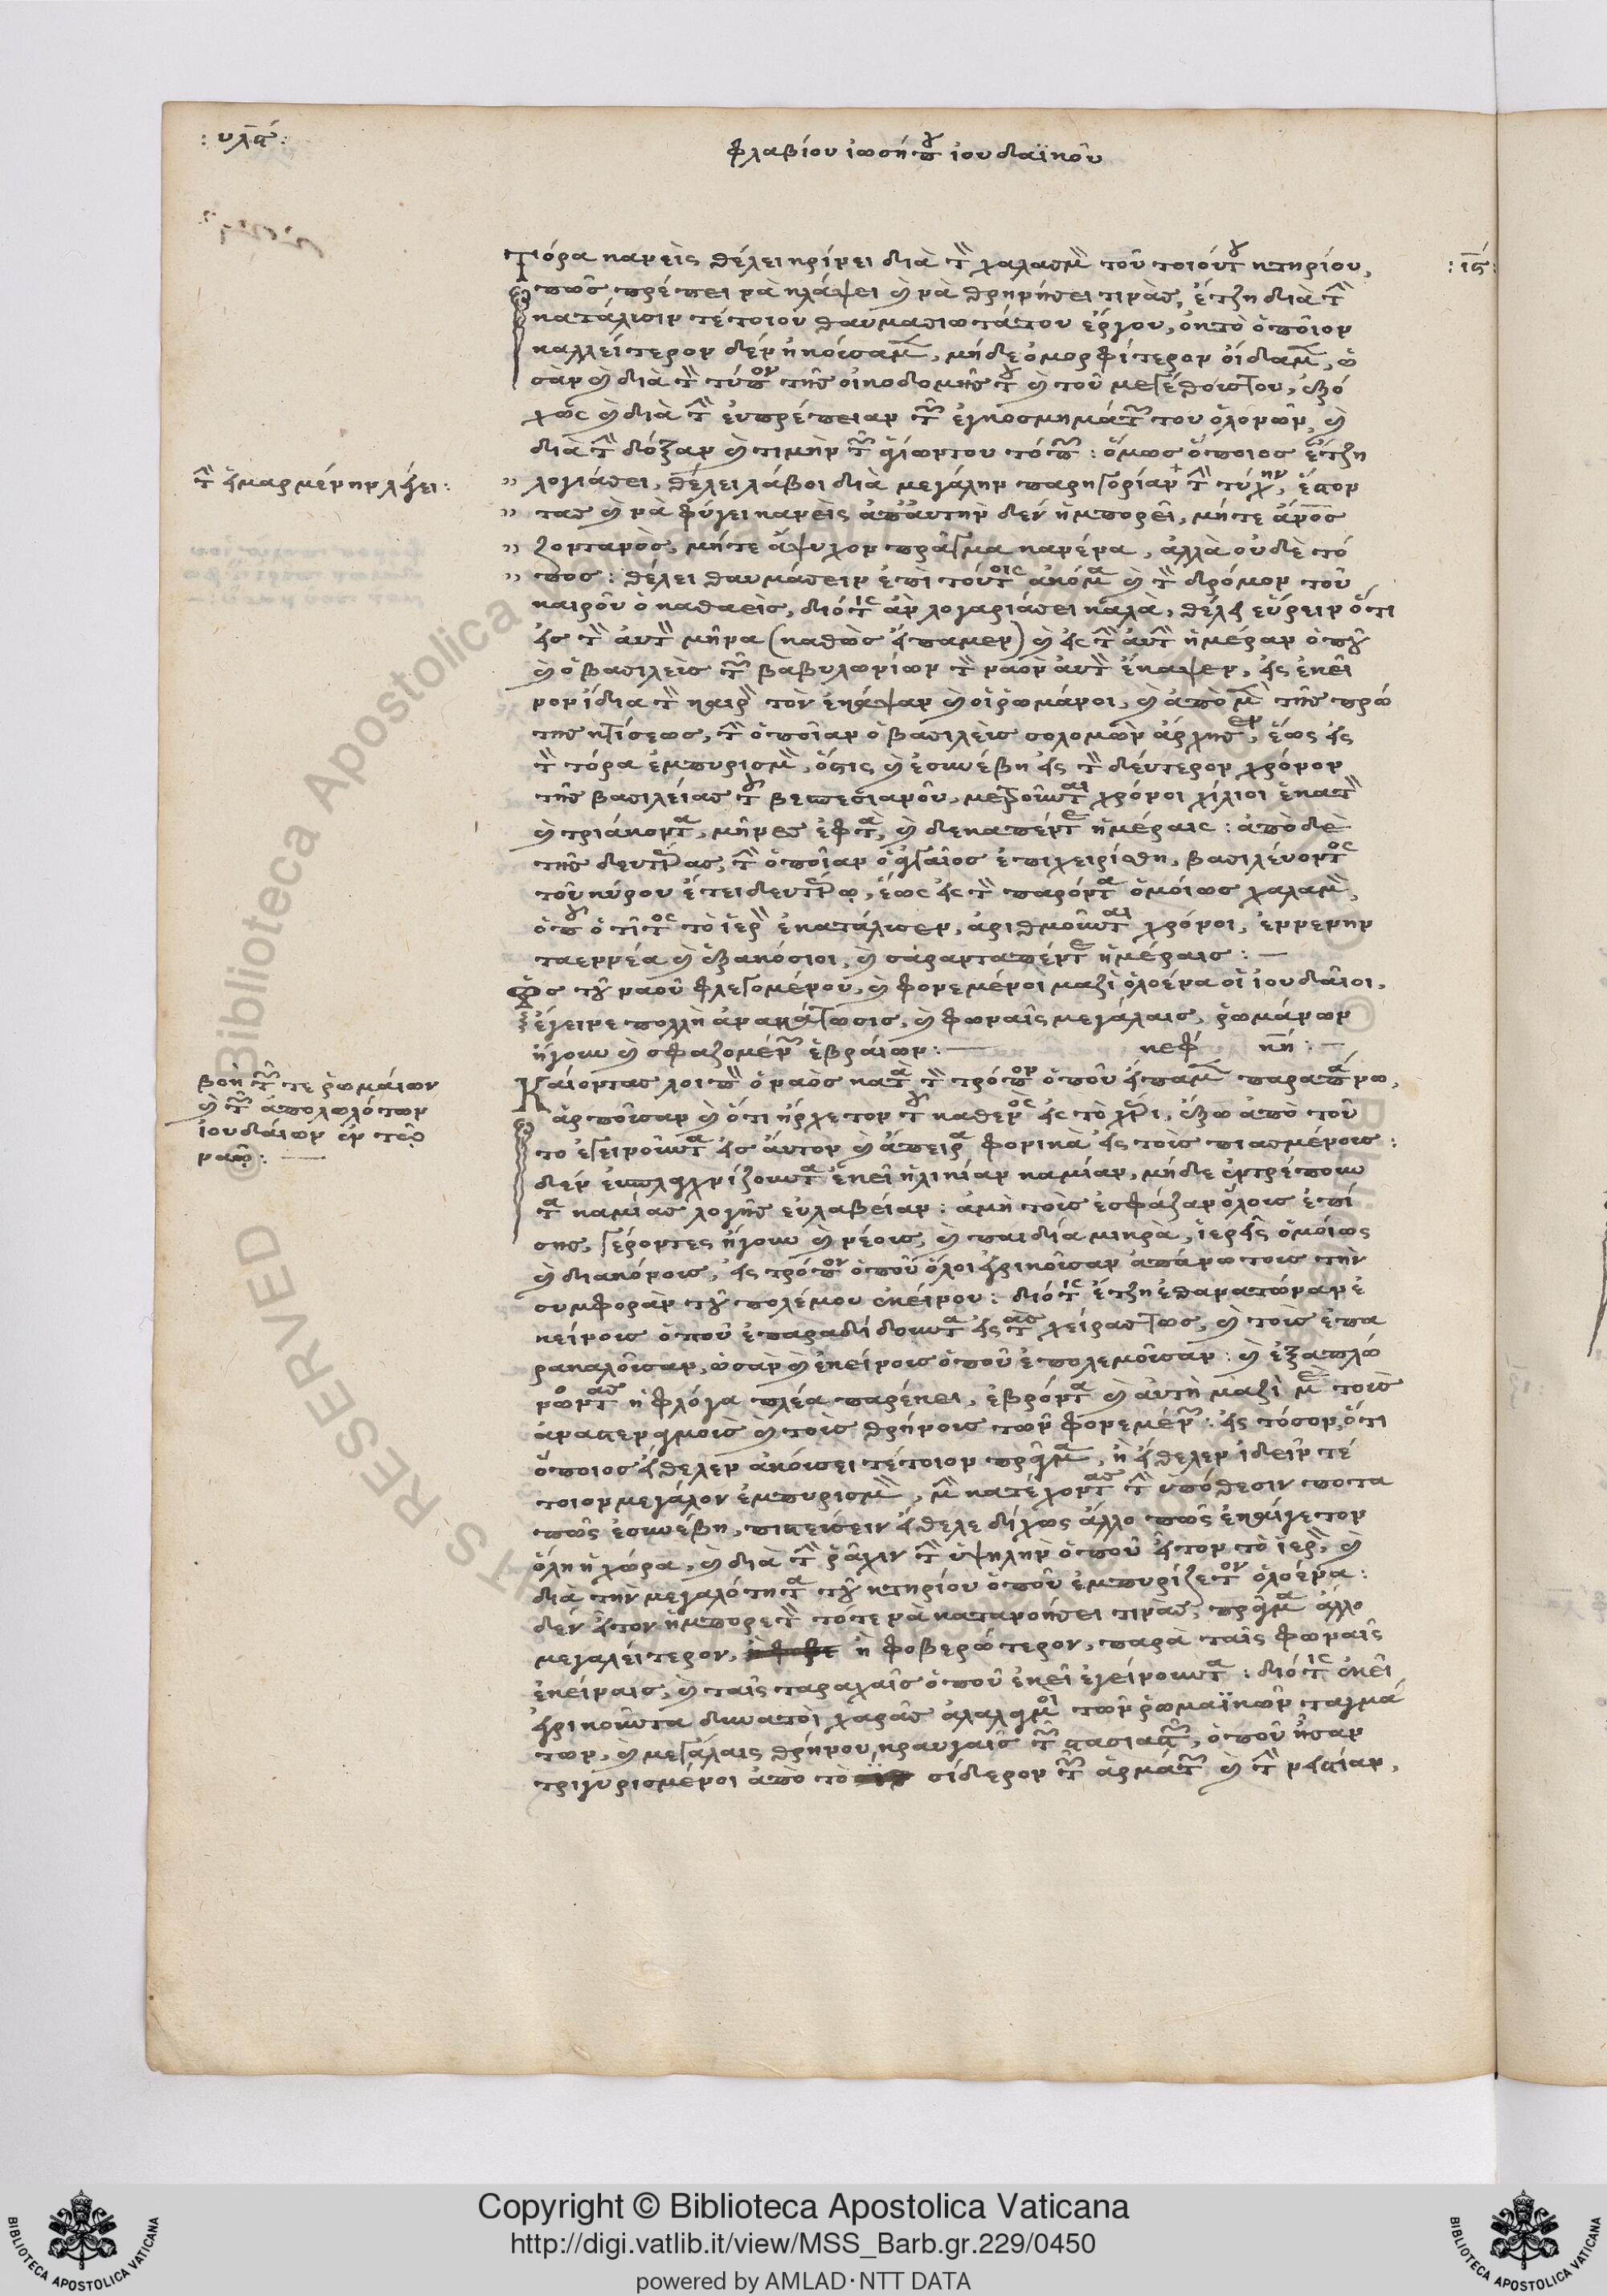 : υλϛ :
φλαβίου ἰωσήπου ἰουδαϊκοῦ
Τώρα κανεὶς θέλει κρίνει διὰ τὸν χαλασμὸν τοῦ τοιούτου κτηρίου,
: ιϛ :
πῶς πρέπει νὰ κλάψει καὶ νὰ θρηνήσει τινὰς, ἔτζη διὰ τὴν
κατάλισιν τέτοιου θαυμασιωτάτου ἔργου, ὁκτὸ ὁποῖον
καλλείτερον δὲν ἠκοίσαμεν, μήδε ὀμορφίτερον οἴδαμεν, ὡ
σὰν καὶ διὰ τὸν τύπον τῆς οἰκοδομῆς του καὶ τοῦ μεγέθοιστου, ἐξό
χως καὶ διὰ τὴν εὐπρέπειαν τῶν ἐγκοσμημάτων του ὁλονῶν, καὶ
διὰ τὴν δόξαν καὶ τιμὴν τῶν ἁγίωντου τόπων : ὅμως ὅποιος ἔτζη
τὴν εἱμαρμένην λέγει :
λογιάσει, θέλει λάβοι διὰ μεγάλην παρηγορίαν τὴν τύχην, ἔστον
τας καὶ νὰ φύγει κανεὶς ἀπ' αυτὴν δὲν ἠμπορεῖ, μήτε ἄνος
ζοντανὸς, μήτε ἄψυχον πρᾶγμα κανένα, ἀλλὰ οὐδὲ τό
πος : θέλει θαυμάσειν ἐπὶ τούτοις ἀκόμα καὶ τὸν δρόμον τοῦ
καιροῦ ὁ καθαεὶς, διότις ἂν λογαριάσει καλὰ, θέλει εὕρειν ὅτι
εἰς τὸν αὐτὸν μῆνα (καθὼς εἴπαμεν) καὶ εἰς τὴν αὐτὴν ἡμέραν ὁποῦ
καὶ ὁ βασιλεὶς τῶν βαβυλωνίων τὸν ναὸν αὐτὸν ἔκαψεν, εἰς ἐκεῖ
νον ἴδια τὸν καιρὸν τὸν ἐκάψαν καὶ οἱ ῥωμάνοι, καὶ ἀπὸ μὲν τῆς πρώ
της κτίσεως, τὴν ὁποῖαν ὁ βασιλεὶς σολομῶν ἄρχησεν, ἕως εἰς
τὸν τόρα ἐμπυρισμὸν, ὅστις καὶ ἐσυνέβη εἰς τὸν δεύτερον χρόνον
τῆς βασιλείας τοῦ βεσπεσιανοῦ, μετροῦνται χρόνοι χίλιοι ἑκατὸν
καὶ τριάκοντα, μῆνες ἑφτὰ, καὶ δεκαπέντε ἡμέραις : ἀπὸ δὲ
τῆς δευτέρας, τὴν ὁποῖαν ὁ ἀγγαῖος ἐπιχειρίσθη, βασιλεύοντος
τοῦ κύρου ἔτει δευτέρῳ, ἕως εἰς τὸν παρόντα ὁμοίως χαλαμὸν,
ὁποῦ ὁ τίτος τὸ ἱερὸν ἐκατάλισεν, ἀριθμοῦνται χρόνοι, ἐννενήν
ταεννέα καὶ ἑξακόσιοι, καὶ σάρανταπέντε ἡμέραις : —
Ὡς τοῦ ναοῦ φλεγομένου, καὶ φονεμένοι μαζὶ ὁλοένα οἱ ἰουδαῖοι,
ἔγειρε πολλὴ ἀνακάτωσις, καὶ φωναῖς μεγάλαις, ῥωμάνων
ἤγουν καὶ σφαζομένων ἑβραίων : — κεφ κη : —
βοὴ τῶν τε ῥωμαίων
καὶ τῶν ἀπολωλότων
ἰουδαίων ἐν τῷ
ναῷ : —
Καίοντας λοιπὸν ὁ ναὸς κατὰ τὸν τρόπον ὁποῦ εἴπαμεν παραπάνω,
ἁρποῦσαν καὶ ὅτι ἤρχετον τοῦ καθενὸς εἰς τὸ χέρι, ἔξω ἀπὸ τοῦ
το ἐγειροῦντα εἰς αὖτον καὶ ἄπειρα φονικὰ εἰς τοὶς πιασμένοις :
δὲν ἐσπλαχνίζουντα ἐκεῖ ἡλικίαν καμίαν, μήδε ἐντρέπουν
τα καμίας λογῆς εὐλαβείαν : ἀμὴ τοὶς ἐσφάζαν ὅλοις ἐπί
σης, γέροντες ἤγουν καὶ νέοις, καὶ παιδία μικρὰ, ἱερεῖς ὁμοίως
καὶ διακόνοις, εἰς τρόπον ὁποῦ ὅλοι ἐγρικοῦσαν ἀπάνω τοις τὴν
συμφορὰν τοῦ πολέμου ἐκείνου : διότις ἔτζη ἐθανατώναν ἐ
κείνοις ὁποῦ ἐπαραδίδουντα εἰς τὰς χεῖρας τως, καὶ τοὶς ἐπα
ρακαλοῦσαν, ὡσὰν καὶ ἐκείνοις ὁποῦ ἐπολεμοῦσαν : καὶ ἐξαπλώ
νῶντας ἡ φλόγα πλέα παρέκει, ἐβρόντα καὶ αὐτὴ μαζὶ μὲ τοὶς
ἀναστεναγμοὶς καὶ τοὶς θρήνοις τῶν φονεμένων : εἰς τόσον, ὅτι
ὅποιος ἤθελεν ἀκούσει τέτοιον πρᾶγμα, ἢ ἤθελεν ἰδεῖν τέ
τοιον μεγάλον ἐμπυρισμὸν, μὴν κατέχοντας τὴν ὑπόθεσιν ποτα
πῶς ἐσυνέβη, πιστεύσειν ἤθελε δίχως ἄλλο πῶς ἐκαίγετον
ὅλη ἡ χώρα, καὶ διὰ τὴν ῥάχιν τὴν ὑψηλὴν ὁποῦ ἦτον τὸ ἱερὸν, καὶ
διὰ τὴν μεγαλότητα τοῦ κτηρίου ὁποῦ ἐμπυρίζετον ὁλοένα :
δὲν ἦτον ἠμπορετὸν τότε νὰ κατανοήσει τινὰς, πρᾶγμα ἄλλο
μεγαλείτερον, ἢ φοβερώτερον, παρὰ ταῖς φωναῖς
ἐκείναις, καὶ ταῖς ταραχαῖς ὁποῦ ἐκεῖ ἐγείρουντα : διότις ἐκεῖ
ἐγρικοῦντα δυνατὸι χαρᾶς ἀλαλαγμοὶ τῶν ῥωμαϊκῶν ταγμά
των, καὶ μεγάλαις θρήνου κραυγαῖς τῶν στασιαστῶν, ὁποῦ ἦσαν
τριγυρισμένοι ἀπὸ τὸ σίδερον τῶν ἀρμάτων καὶ τὴν νιστίαν,
Copyright © Biblioteca Apostolica Vaticana
http://digi.vatlib.it/view/MSS_Barb.gr.229/0450
powered by AMLAD·NTT DATA